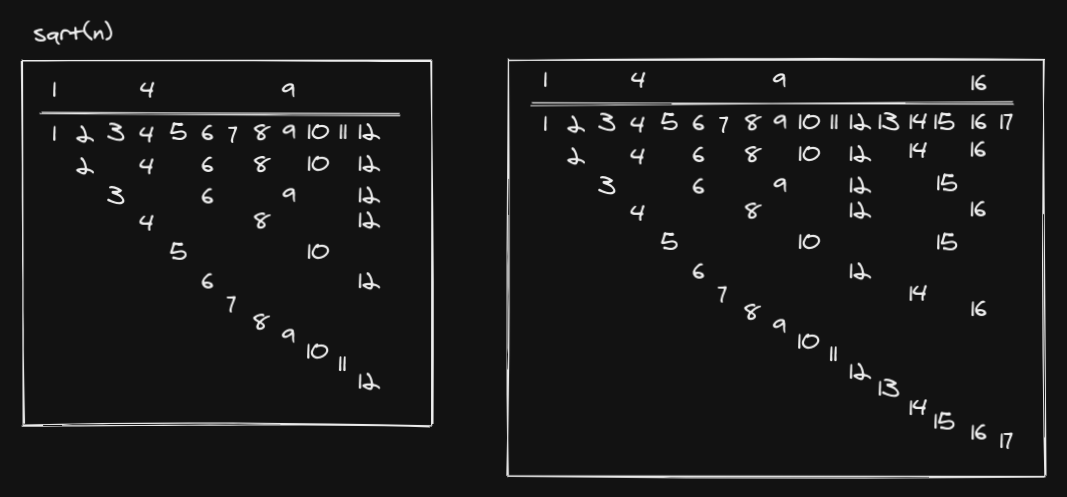 sqrt(n)
1 4 9
1 2 3 4 5 6 7 8 9 10 11 12
2 4 6 8 10 12
3 6 9 12
4 8 12
5 10
6 12
7
8
9
10
11
12
1 4 9 16
1 2 3 4 5 6 7 8 9 10 11 12 13 14 15 16 17
2 4 6 8 10 12 14 16
3 6 9 12 15
4 8 12 16
5 10 15
6 12
7 14
8 16
9
10
11
12
13
14
15
16
17